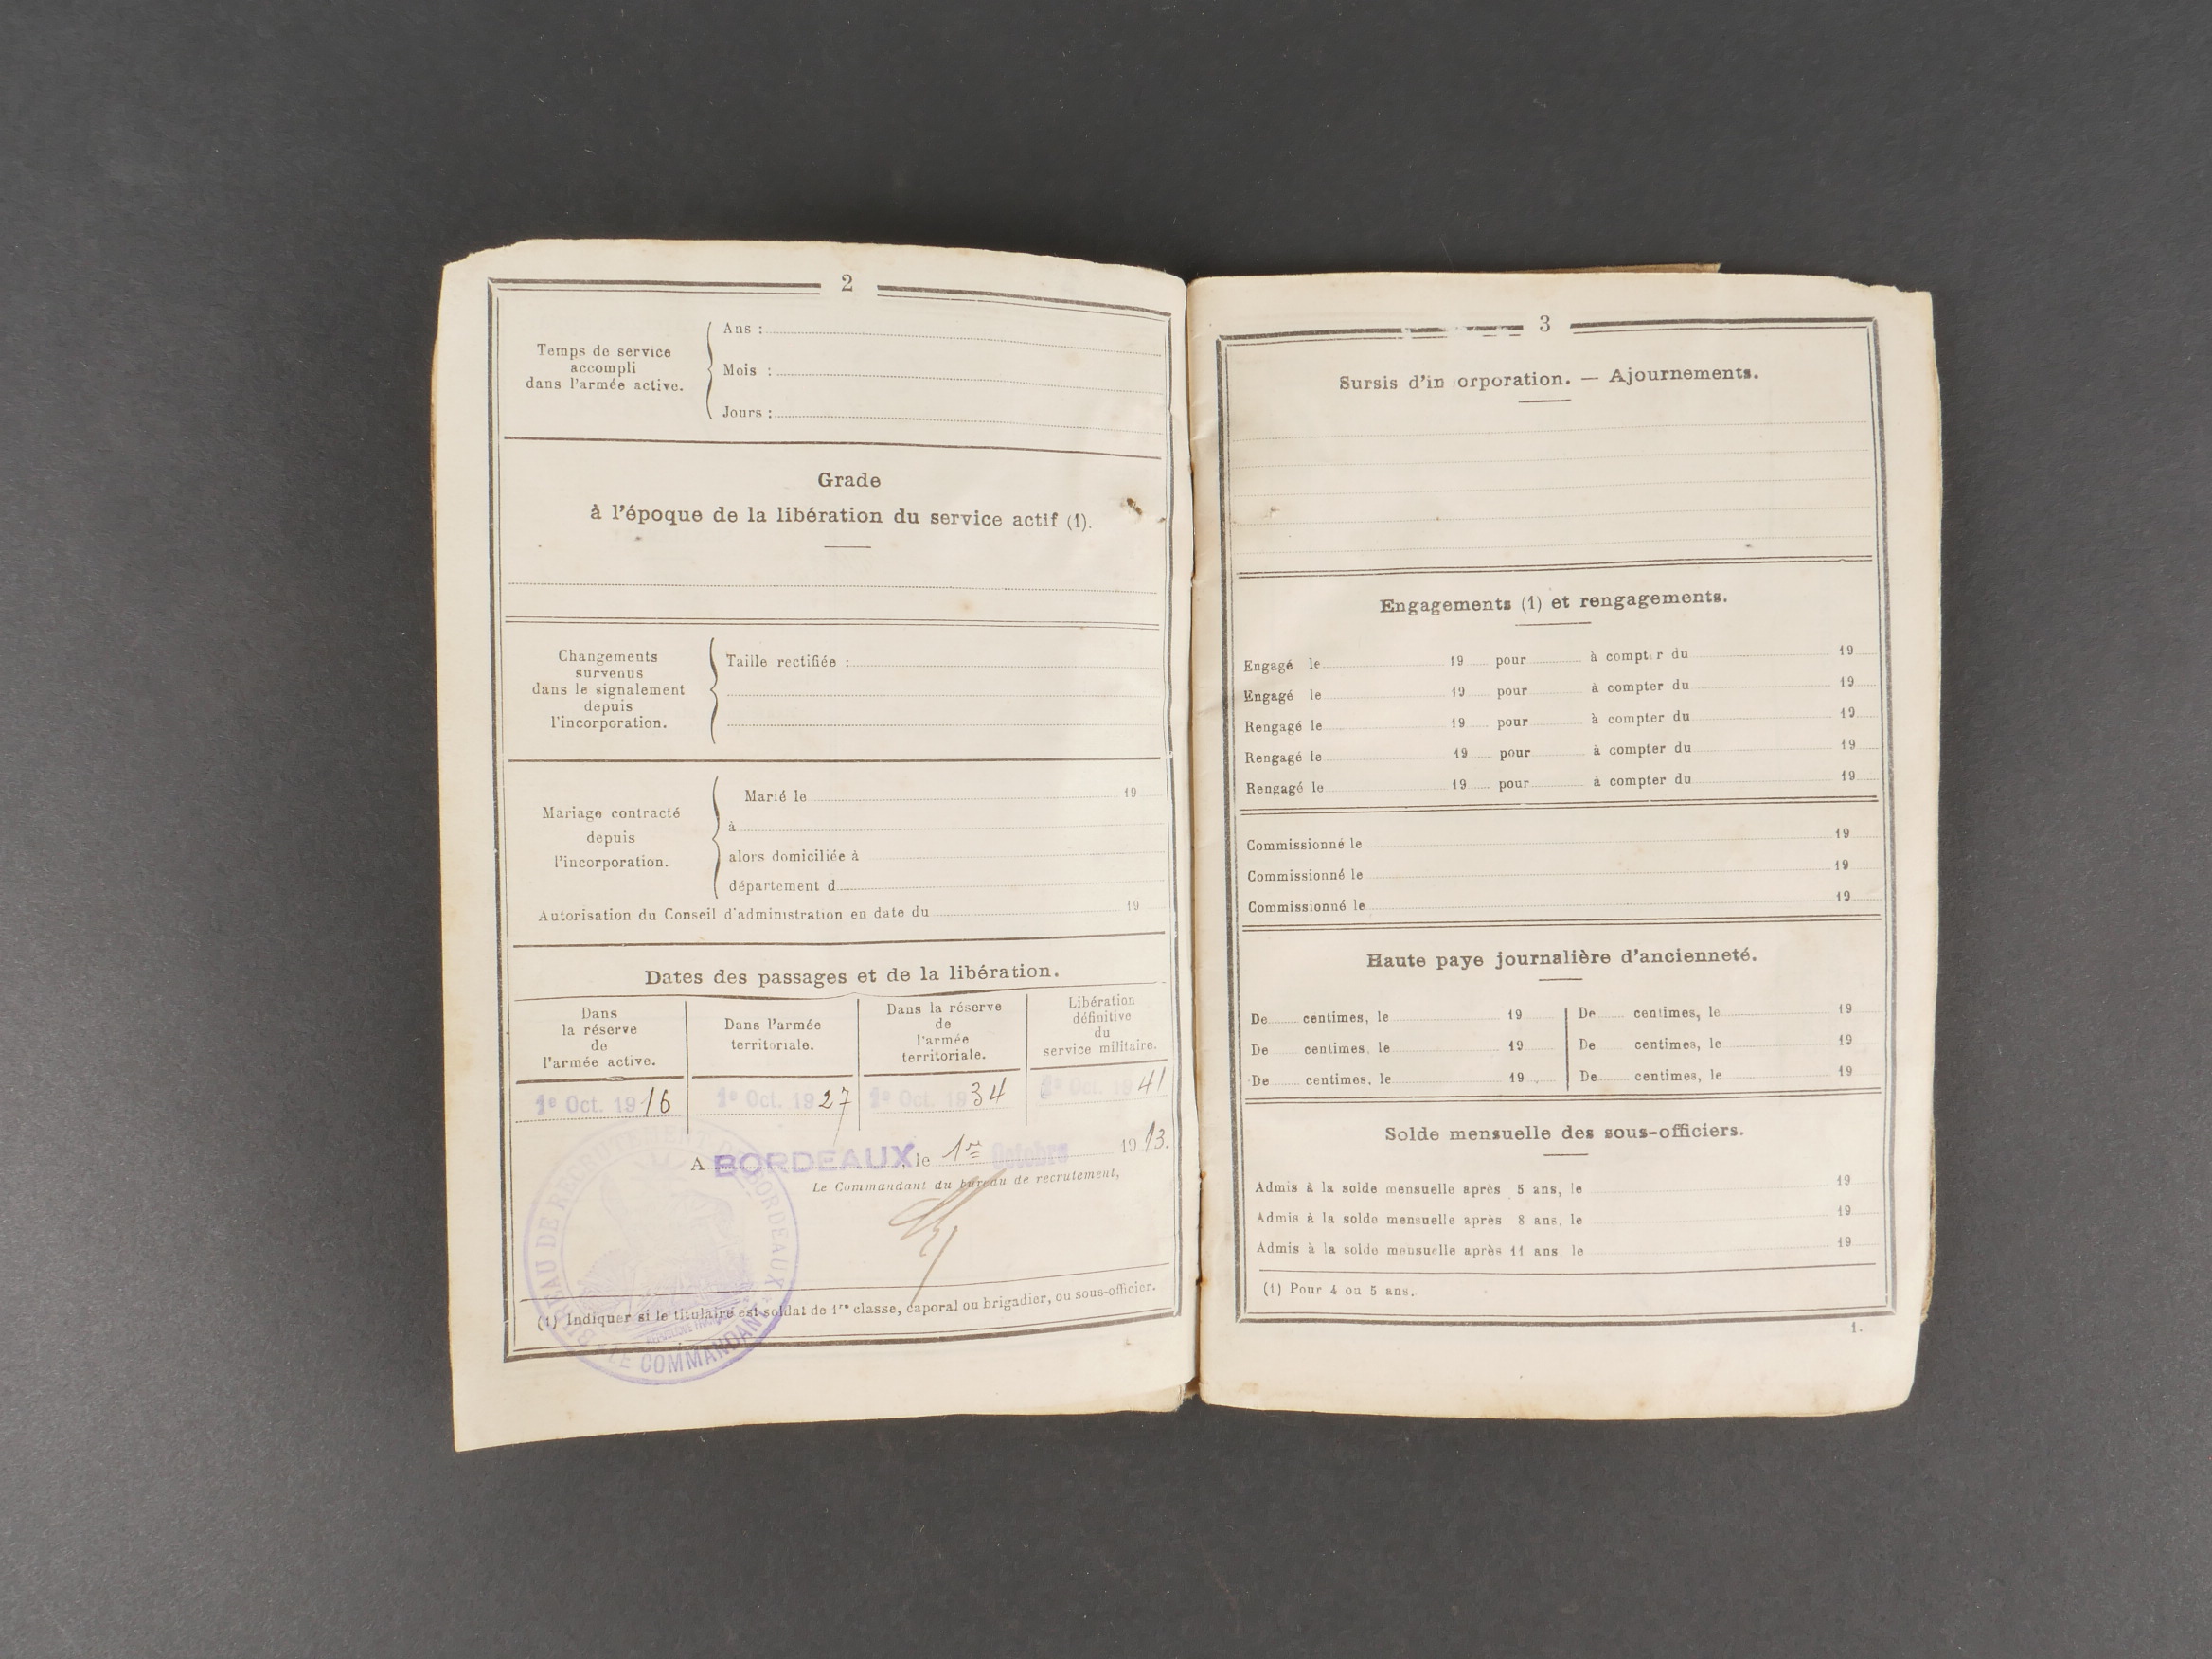 2
Temps de service
accompli
dans l'armée active.
Ans :
Mois :
Jours :
Grade
à l'époque de la libération du service actif (1).
Changements
survenus
dans le signalement
depuis
l'incorporation.
Taille rectifiée :
Mariage contracté
depuis
l'incorporation.
Marié le 19
à
alors domiciliée à
département d
Autorisation du Conseil d'administration en date du 19
Dates des passages et de la libération.
Dans
la réserve
de
l'armée active.
Dans l'armée
territoriale.
Dans la réserve
de
l'armée
territoriale.
Libération
définitive
du
service militaire.
1e Oct. 1916
1e Oct. 1927
1e Oct. 1934
1e Oct. 1941
A BORDEAUX, le 1re Octobre 1913.
Le Commandant du bureau de recrutement,
BUREAU DE RECRUTEMENT DE BORDEAUX
LE COMMANDANT
(1) Indiquer si le titulaire est soldat de 1re classe, caporal ou brigadier, ou sous-officier.
3
Sursis d'in orporation. — Ajournements.
Engagements (1) et rengagements.
Engagé le 19 pour à compt r du 19
Engagé le 19 pour à compter du 19
Rengagé le 19 pour à compter du 19
Rengagé le 19 pour à compter du 19
Rengagé le 19 pour à compter du 19
Commissionné le 19
Commissionné le 19
Commissionné le 19
Haute paye journalière d'ancienneté.
De centimes, le 19 De centimes, le 19
De centimes, le 19 De centimes, le 19
De centimes, le 19 De centimes, le 19
Solde mensuelle des sous-officiers.
Admis à la solde mensuelle après 5 ans, le 19
Admis à la solde mensuelle après 8 ans, le 19
Admis à la solde mensuelle après 11 ans le 19
(1) Pour 4 ou 5 ans.
1.